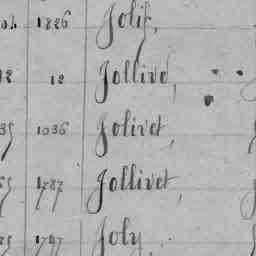 1826 Jolif,
12 Jollivd,
35 1036 Jolivet,
1787 Jollivet,
1797 Joly,